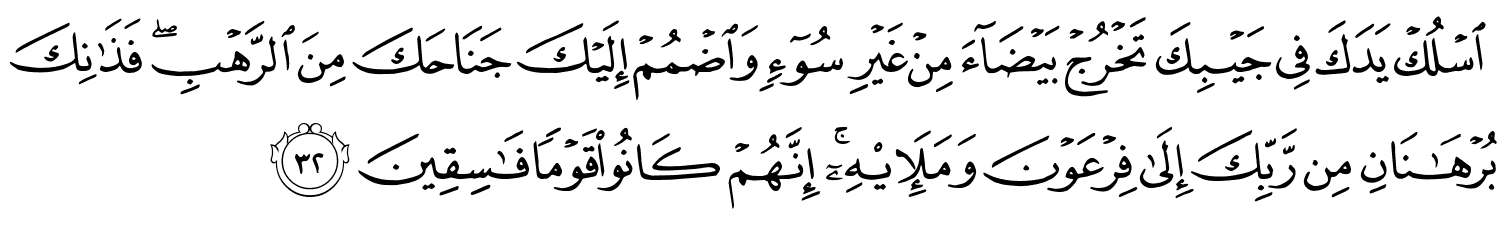 ٱسۡلُكۡ يَدَكَ فِي جَيۡبِكَ تَخۡرُجۡ بَيۡضَآءَ مِنۡ غَيۡرِ سُوٓءٖ وَٱضۡمُمۡ إِلَيۡكَ جَنَاحَكَ مِنَ ٱلرَّهۡبِۖ فَذَٰنِكَ
بُرۡهَٰنَانِ مِن رَّبِّكَ إِلَىٰ فِرۡعَوۡنَ وَمَلَإِيْهِۦٓۚ إِنَّهُمۡ كَانُواْ قَوۡمٗا فَٰسِقِينَ ٣٢